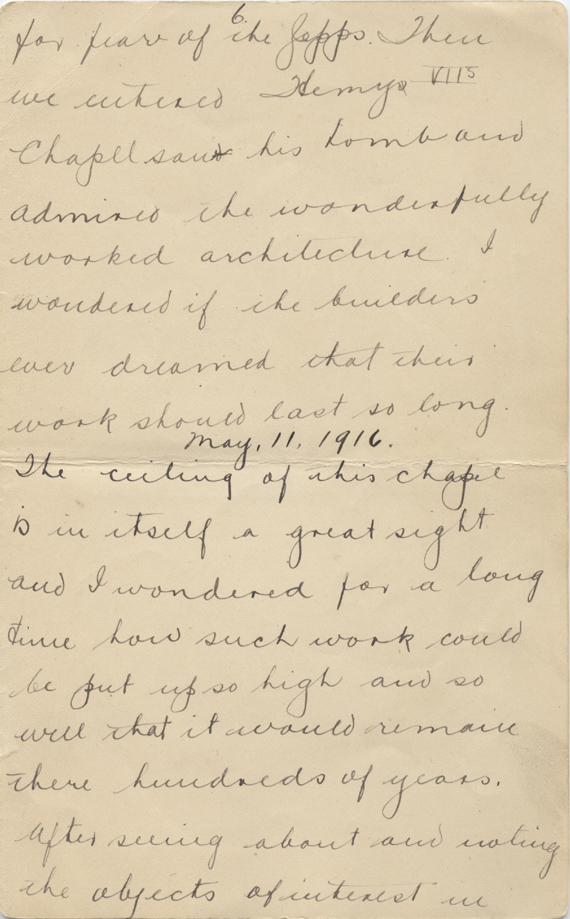 6.
for feare of the Zepps. Then
we entered Henrys VIIs
Chapell saw his tomb and
admired the wonderfully
worked architecture. I
wondered if the builders
ever dreamed that their
work should last so long.
May, 11, 1916.
The ceiling of this chapel
is in itself a great sight
and I wondered for a long
time how such work could
be put up so high and so
well that it would remain
there hundreds of years.
After seeing about and noting
the objects of interest in